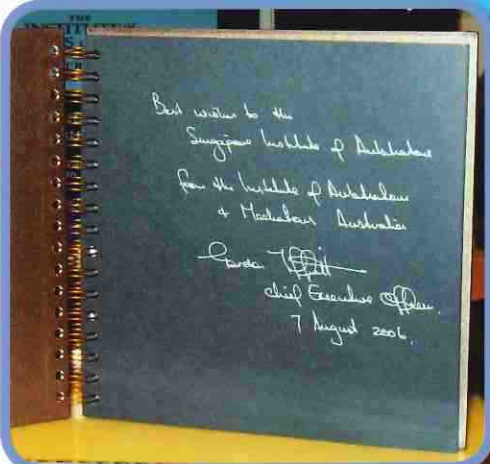 THE
INSTITUTE
Best wishes to the
Singapore Institute of Arbitrators
from the Institute of Arbitrators
& Mediators Australia
Chief Executive Officer.
7 August 2006.